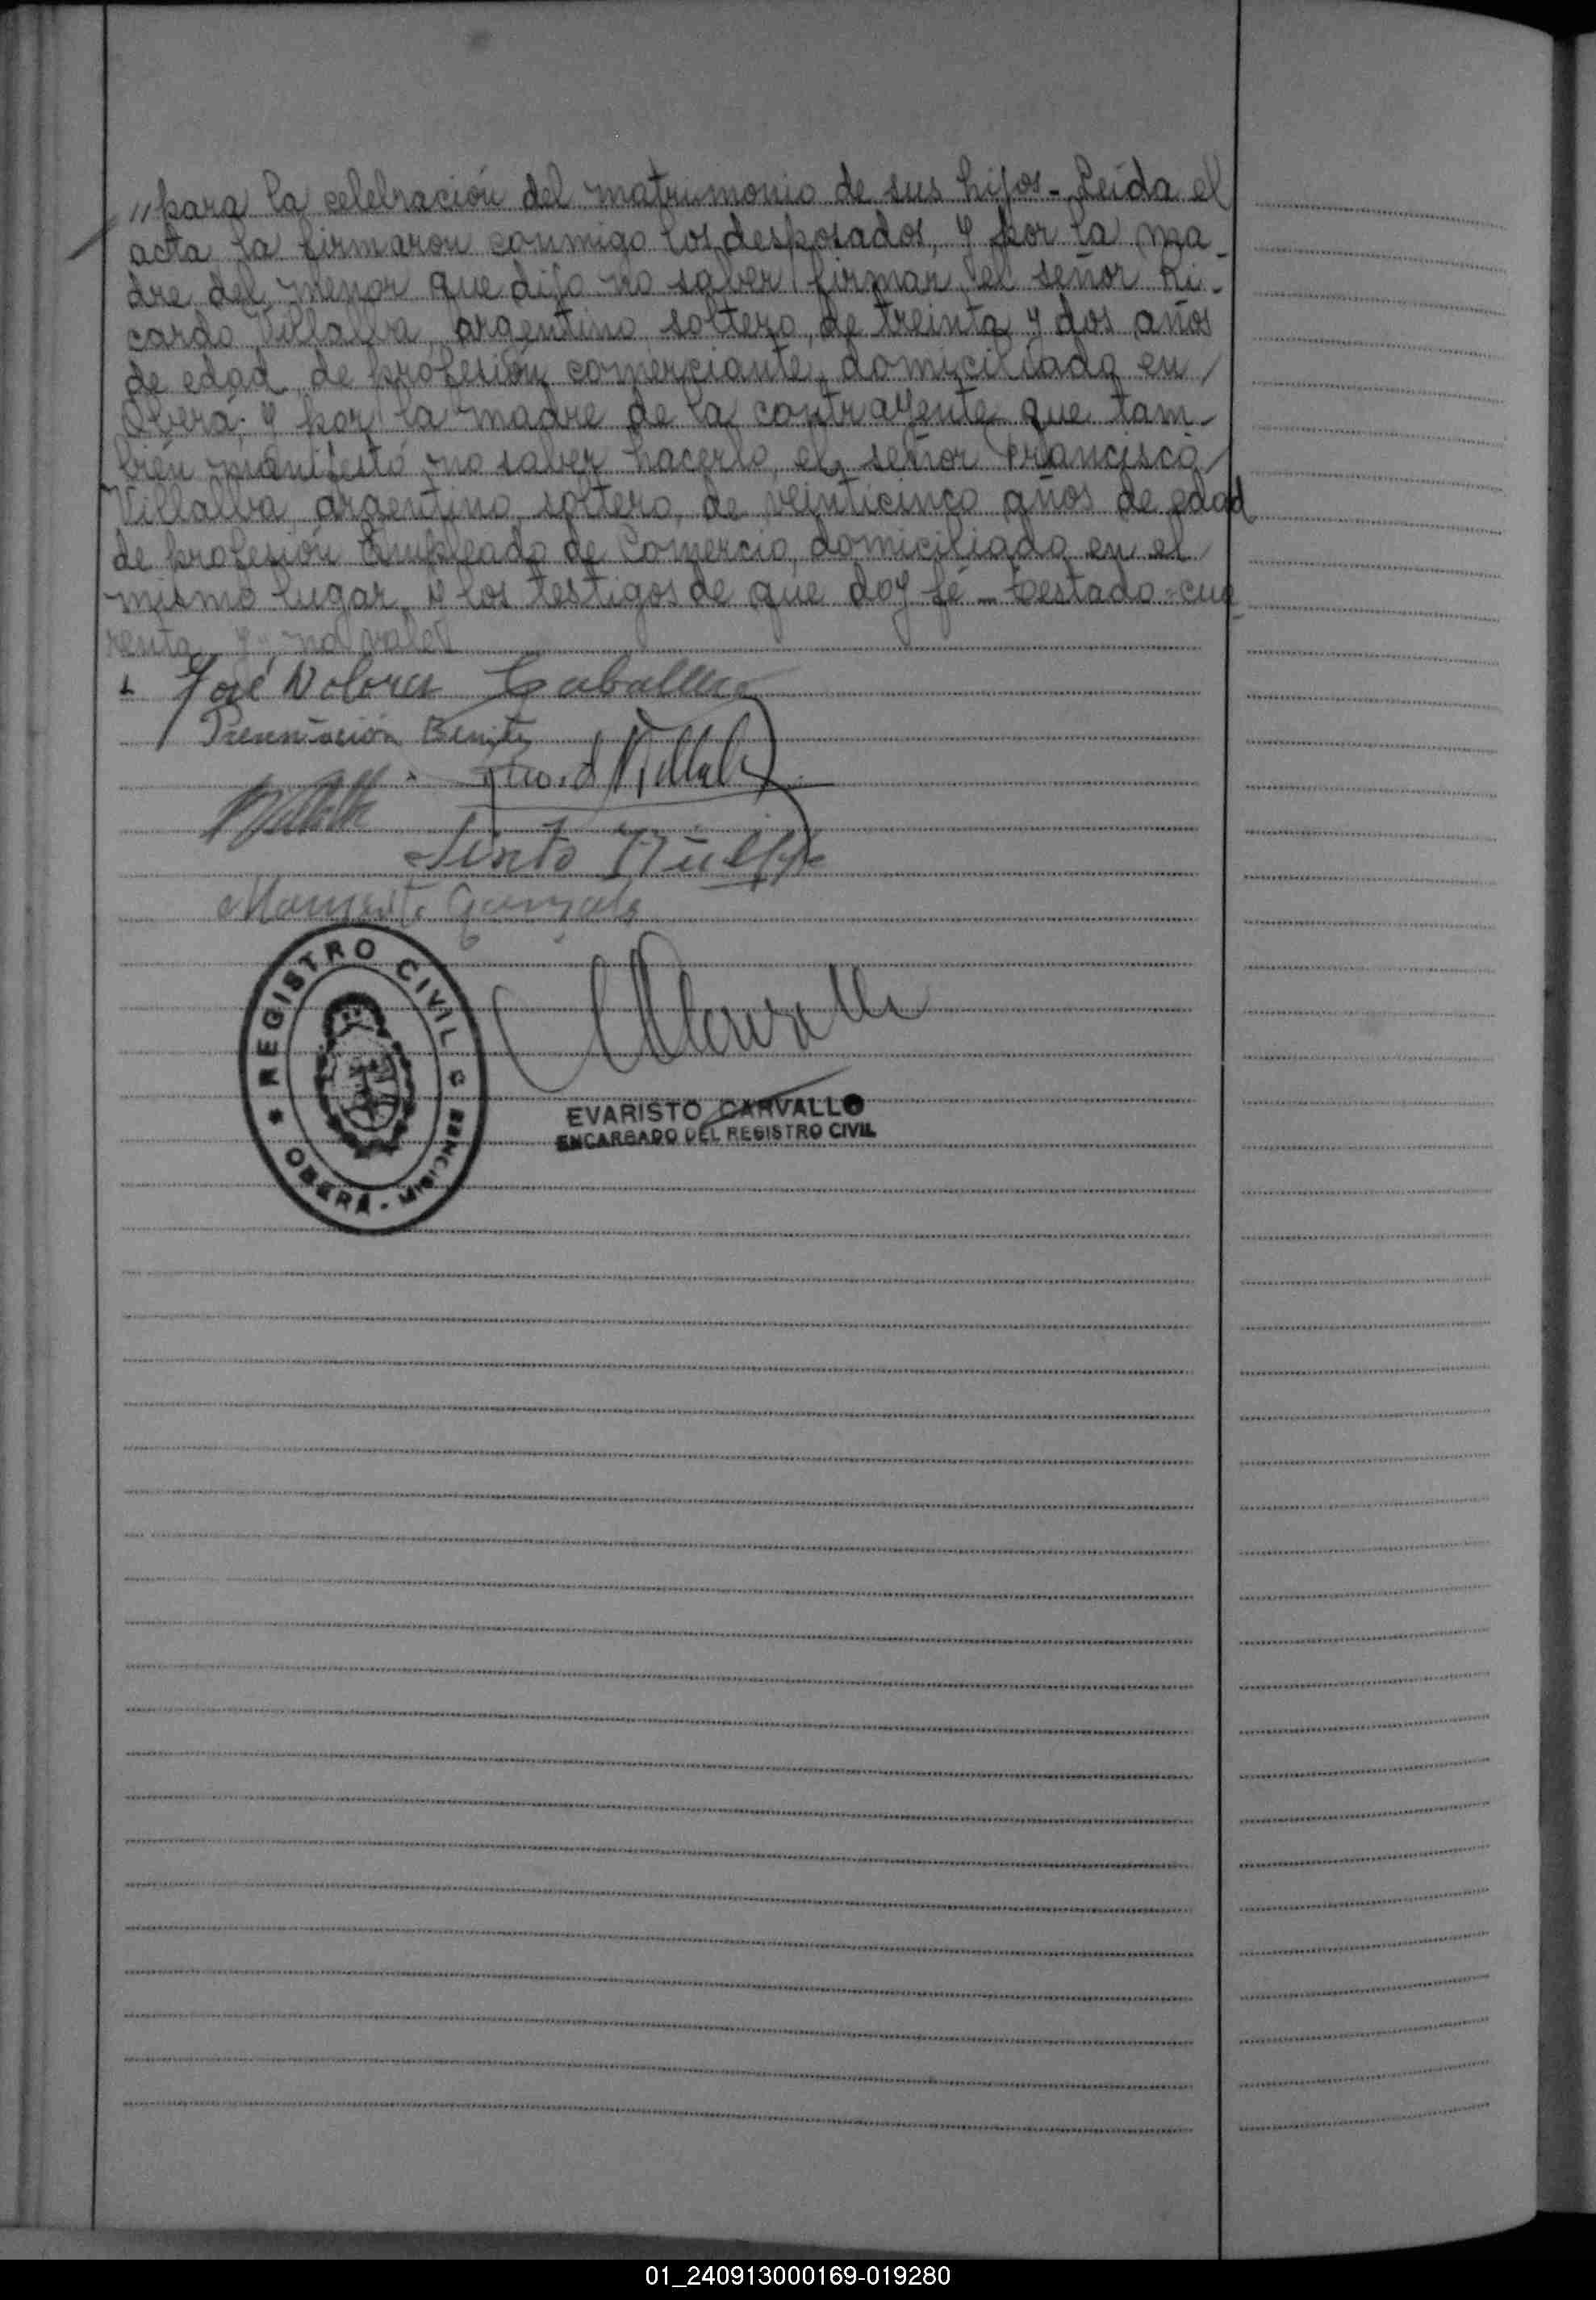 "para la celebración del matrimonio de sus hijos - Leída el
acta la firmaron conmigo los desposados, y por la ma-
dre del menor que dijo no saber firmar, el señor Ri-
cardo Villalba, argentino soltero, de treinta y dos años
de edad de profesión comerciante, domiciliado en
Oberá; y por la madre de la contrayente que tam-
bién manifestó no saber hacerlo, el señor Francisco
Villalba argentino, soltero, de veinticinco años de edad
de profesión Empleado de Comercio, domiciliado en el
mismo lugar, y los testigos de que doy fé - Testado = cua
renta y no vale
José Dolores Caballero
Presentación Benitez
Ricardo Villalba
Sixto
Margarita Gonzalez
REGISTRO CIVIL
OBERÁ - MISIONES
EVARISTO CARVALLO
ENCARGADO DEL REGISTRO CIVIL
01_240913000169-019280